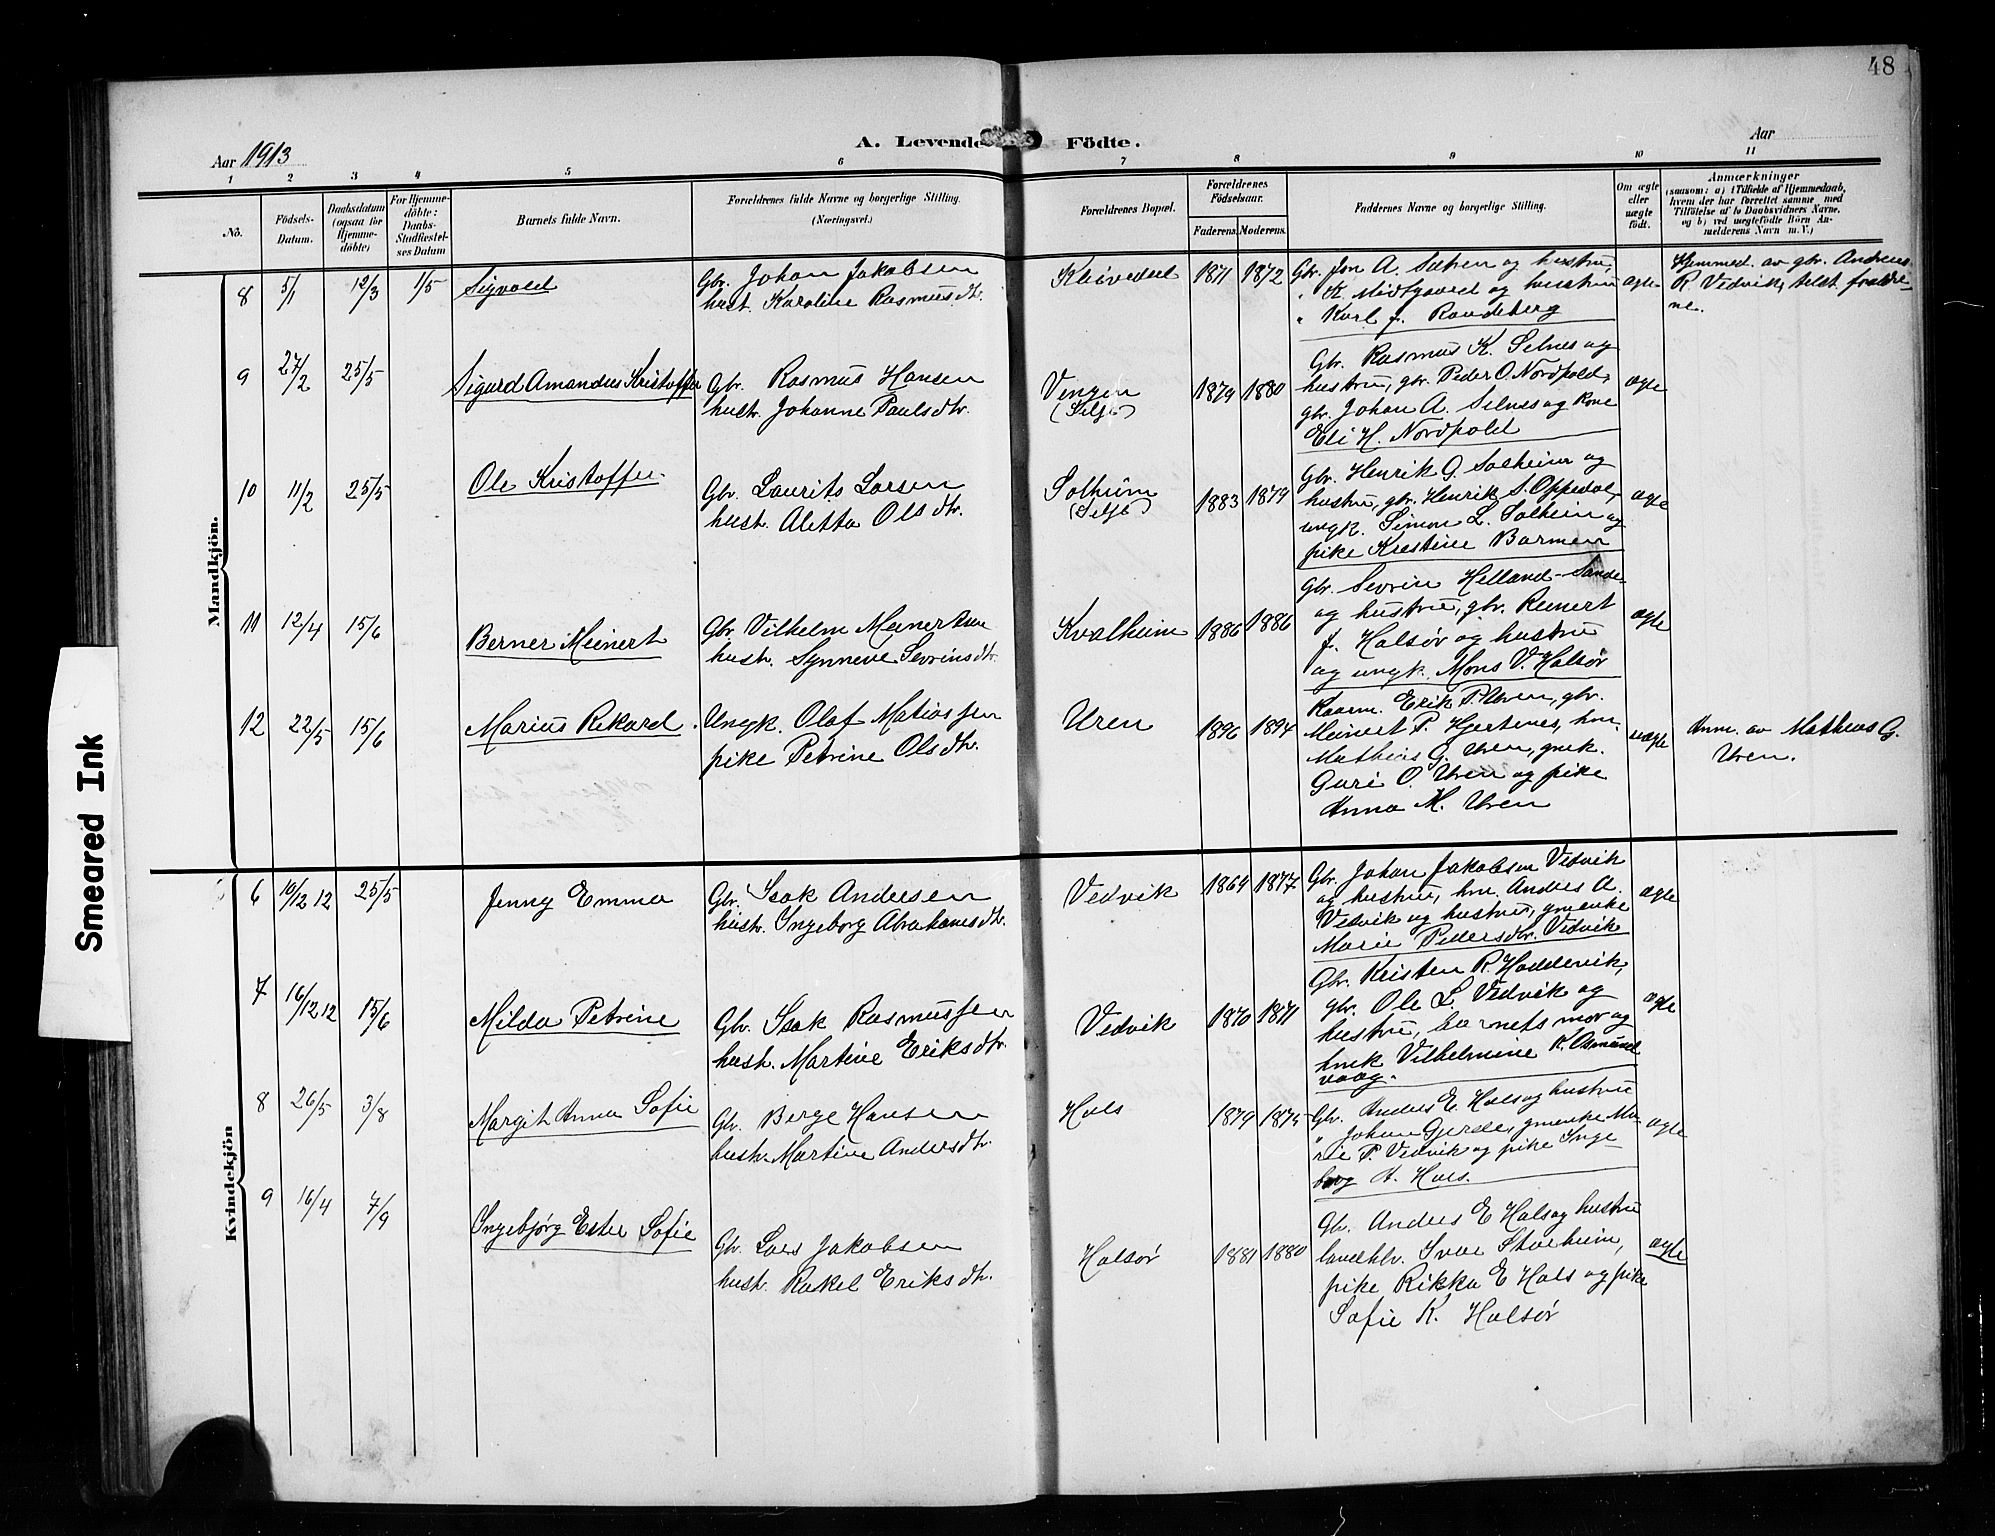 48
A. Levende Födte.
Aar 1913
Aar
1 2 3 4 5 6 7 8 9 10 11
No.
Födsels-Datum.
Daabsdatum (ogsaa for Hjemme-döbte)
For Hjemme-döbte: Daabs-Stadfæstel-ses Datum
Barnets fulde Navn.
Forældrenes fulde Navne og borgerlige Stilling.
(Næringsvei.)
Forældrenes Bopæl.
Forældrenes Födselsaar.
Faderens. Moderens.
Faddernes Navne og borgerlige Stilling.
Om ægte eller uægte födt.
Anmærkninger
(saasom: a) i Tilfælde af Hjemmedaab, hvem der har forrettet samme, med Tilföielse af to Daabsvidners Navne, og b) ved uægtefödte Börn Anmelderens Navn m. V.)
Mandkjön.
8 5/1 12/3 1/5 Sigvald
Gbr. Johan Jakobsen
hust. Karoline Rasmusdtr.
Kleivedal 1871 1872
Gbr. Jon A. Sætren og hustru,
" K. Midtgaard og hustru
" Karl J. Randeberg
ægte
Hjemmed. av gbr. Andreas
R Vedvik, tilst. foreldre-
ne.
9 27/2 25/5 Sigurd Amandus Kristoffer
Gbr. Rasmus Hansen
hustr. Johanne Paulsdtr.
Vengen
(Selje)
1879 1880
Gbr. Rasmus K. Selnes og
hustru, gbr. Peder O. Nordpold,
gbr. Johan A. Selnes og kone
Eli H. Nordpold
ægte
10 11/2 25/5 Ole Kristoffer.
Gbr. Laurits Larsen
hust. Aletta Olsdtr.
Solheim
(Selje)
1883 1879
Gbr. Henrik G. Solheim og
hustru, gbr. Henrik S. Oppedal,
ungk. Simon L. Solheim og
pike Kristine Barmen
ægte
11 12/4 15/6 Berner Meinert
Gbr. Vilhelm Meinertsen
hust. Synneve Sevrinsdtr.
Kvalheim 1886 1886
Gbr. Sevrin Helland-Sande
og hustru, gbr. Reinert
J. Halsør og hustru
og ungk. Mons V. Halsør
ægte
12 22/5 15/6 Marius Rikard.
Ungk. Olaf Matiassen
pike Petrine Olsdtr.
Uren 1896 1894
Kaarm. Erik P. Uren, gbr.
Meinert P. Hjertenes, hm.
Mathias G. Uren, gmek.
Guri O. Uren og pike
Anna M. Uren
uægte
Anm. av Mathias G.
Uren.
Kvindekjön
6 10/12 12 25/5 Jenny Emma
Gbr. Isak Andersen
hustr. Ingeborg Abrahamsdtr.
Vedvik 1864 1877
Gbr. Johan Jakobsen Vedvik
og hustru, hm. Anders A.
Vedvik og hustru, gmenke
Marie Pedersdtr. Vedvik
ægte
7 16/12 12 15/6 Milda Petrine
Gbr. Isak Rasmussen
hust. Martine Eriksdtr.
Vedvik 1870 1871
Gbr. Kristen R. Hoddevik,
gbr. Ole L. Vedvik og
hustru, barnets mor og
hmk Vilhelmine R. Osmund
vaag.
ægte
8 26/5 3/8 Margit Anna Sofie
Gbr. Berge Hansen
hustr. Martine Andersdtr.
Hals 1879 1875
Gbr. Anders E. Hals og hustru
" Johan Gjerde, gmenke Ma-
rie P. Vedvik og pike Inge
borg A. Hals.
ægte
9 16/4 7/9 Ingebjørg Ester Sofie
Gbr. Lars Jakobsen
hust. Rakel Eriksdtr.
Halsør 1881 1880
Gbr. Anders E Hals og hustru
landhlr. Ivar Storheim,
pike Rikka E Hals og pike
Sofie K. Halsør
ægte
Smeared Ink